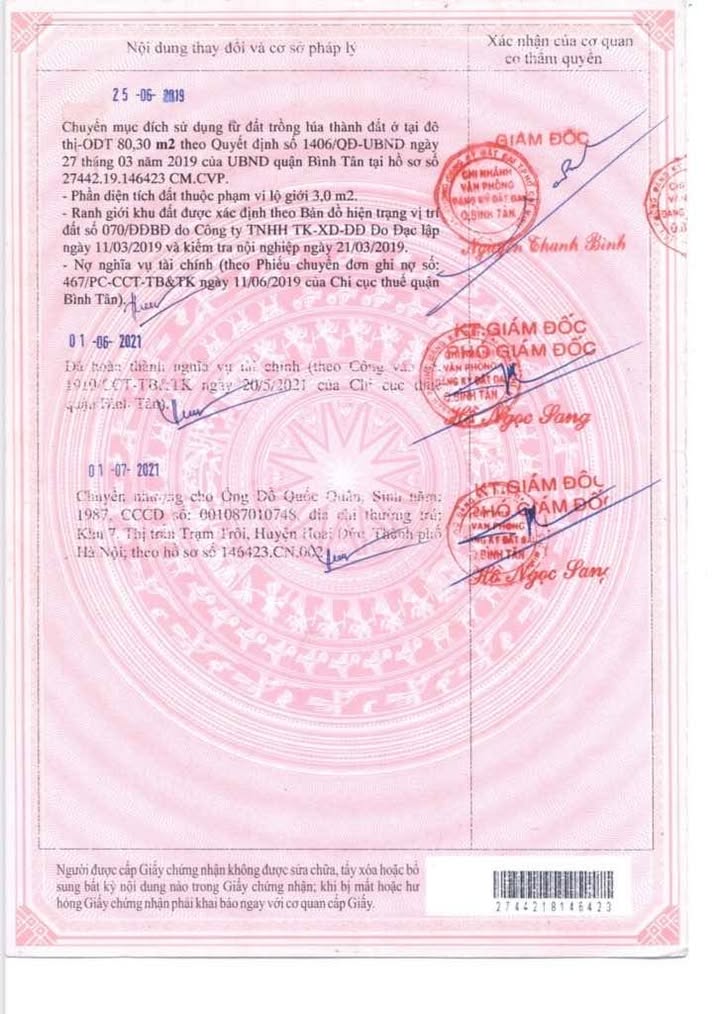 Nội dung thay đổi và cơ sở pháp lý
Xác nhận của cơ quan
có thẩm quyền
25 -06- 2019
Chuyển mục đích sử dụng từ đất trồng lúa thành đất ở tại đô
thị-ODT 80,30 m2 theo Quyết định số 1406/QĐ-UBND ngày
27 tháng 03 năm 2019 của UBND quận Bình Tân tại hồ sơ số
27442.19.146423 CM.CVP.
- Phần diện tích đất thuộc phạm vi lộ giới 3,0 m2.
- Ranh giới khu đất được xác định theo Bản đồ hiện trạng vị trí
đất số 070/ĐĐBĐ do Công ty TNHH TK-XD-DĐ Đo Đạc lập
ngày 11/03/2019 và kiểm tra nội nghiệp ngày 21/03/2019.
- Nợ nghĩa vụ tài chính (theo Phiếu chuyển đơn ghi nợ số:
467/PC-CCT-TB&TK ngày 11/06/2019 của Chi cục thuế quận
Bình Tân).
GIÁM ĐỐC
CHI NHÁNH
VĂN PHÒNG
ĐĂNG KÝ ĐẤT ĐAI
Q.BÌNH TÂN
Nguyễn Thanh Bình
01 -06- 2021
Đã hoàn thành nghĩa vụ tài chính (theo Công văn
1919/CCT-TB&TK ngày 20/5/2021 của Chi cục thuế
quận Bình Tân).
KT.GIÁM ĐỐC
PHÓ GIÁM ĐỐC
VĂN PHÒNG
Q.BÌNH TÂN
Hồ Ngọc Sang
01 -07- 2021
Chuyển nhượng cho Ông Đỗ Quốc Quân, Sinh năm:
1987, CCCD số: 001087010748, địa chỉ thường trú:
Khu 7, Thị trấn Trạm Trôi, Huyện Hoài Đức, Thành phố
Hà Nội; theo hồ sơ số 146423.CN.002
KT.GIÁM ĐỐC
PHÓ GIÁM ĐỐC
VĂN PHÒNG
Q.BÌNH TÂN
Hồ Ngọc Sang
Người được cấp Giấy chứng nhận không được sửa chữa, tẩy xóa hoặc bổ
sung bất kỳ nội dung nào trong Giấy chứng nhận; khi bị mất hoặc hư
hỏng Giấy chứng nhận phải khai báo ngay với cơ quan cấp Giấy.
2744218146423